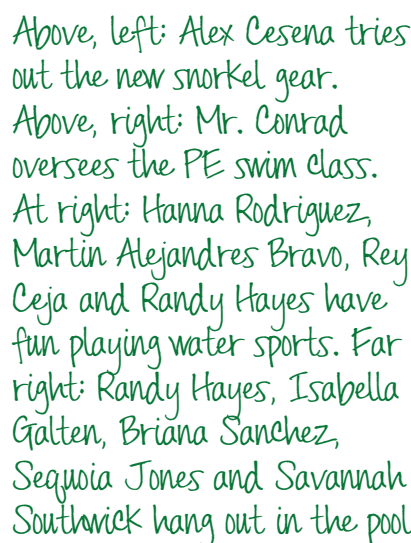 Above, left: Alex Cesena tries
out the new snorkel gear.
Above, right: Mr. Conrad
oversees the PE swim class.
At right: Hanna Rodriguez,
Martin Alejandres Bravo, Rey
Ceja and Randy Hayes have
fun playing water sports. Far
right: Randy Hayes, Isabella
Galten, Briana Sanchez,
Sequoia Jones and Savannah
Southwick hang out in the pool